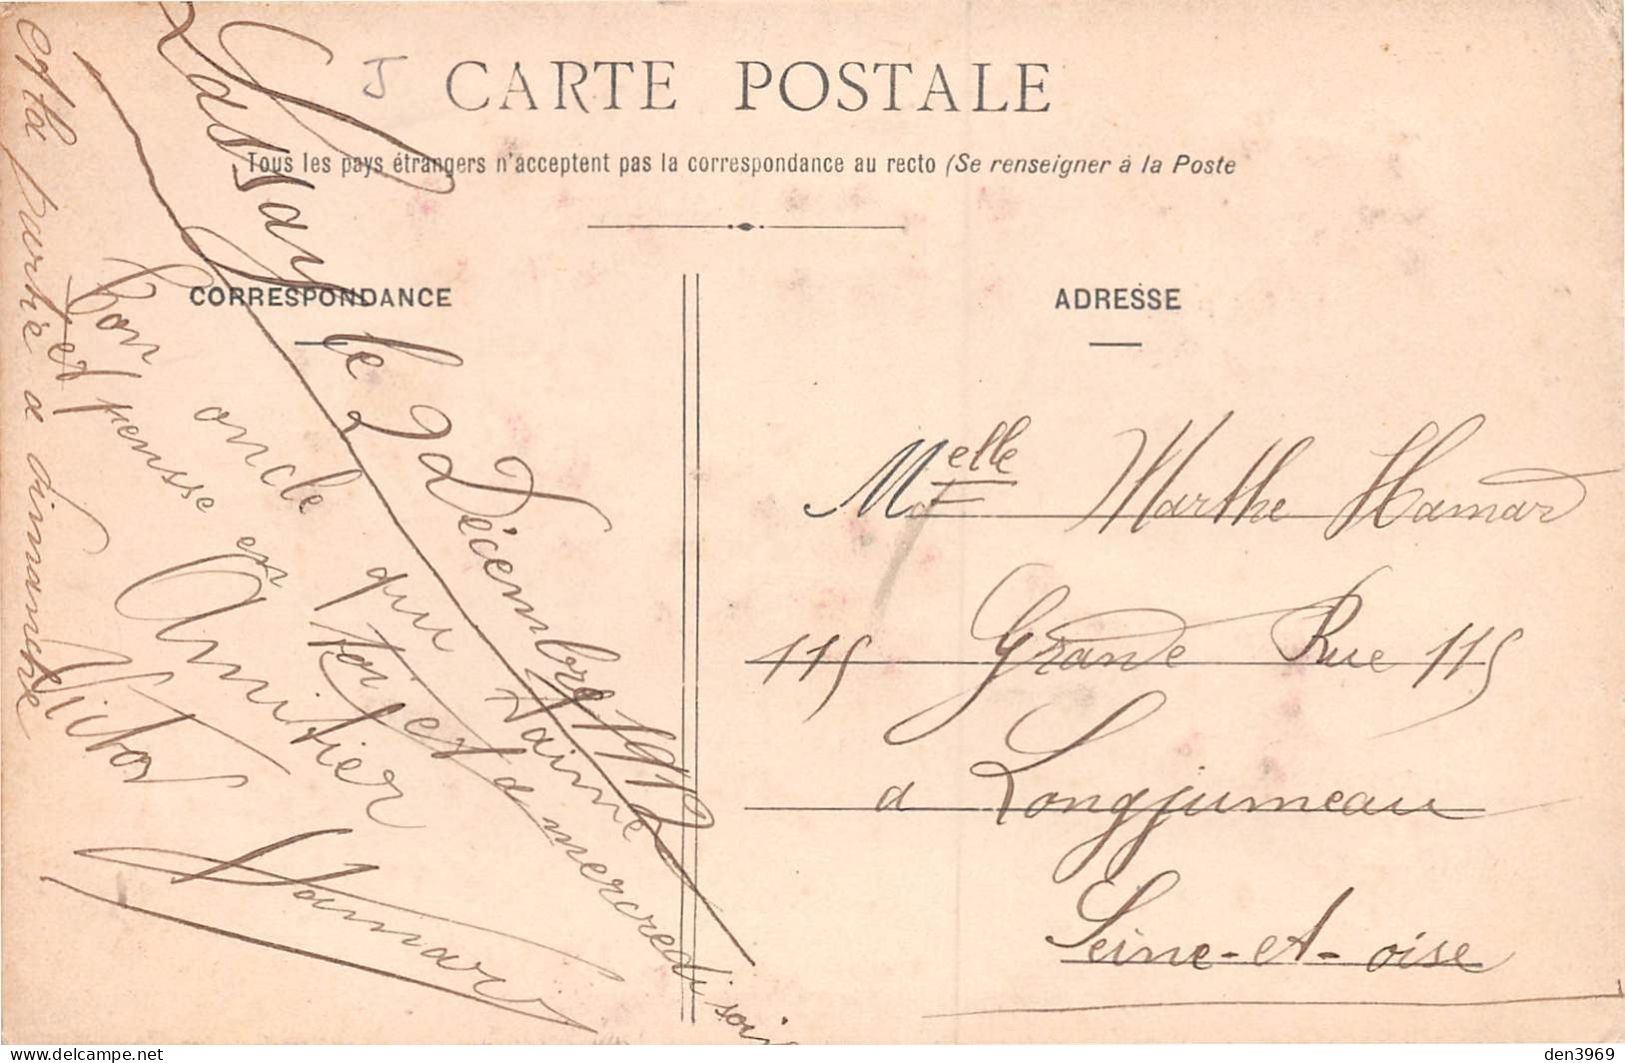 J
CARTE POSTALE
Tous les pays étrangers n'acceptent pas la correspondance au recto (Se renseigner à la Poste
CORRESPONDANCE
ADRESSE
Lassay le 2 Décembre 1912
Ton oncle qui t'aime
et pensse en toi et a mercredi soir
Amitier
Victor
Hamard
et ta partie a dimanche
Melle Marthe Hamard
115 Grande Rue 115
a Longjumeau
Seine-et-oise
den3969